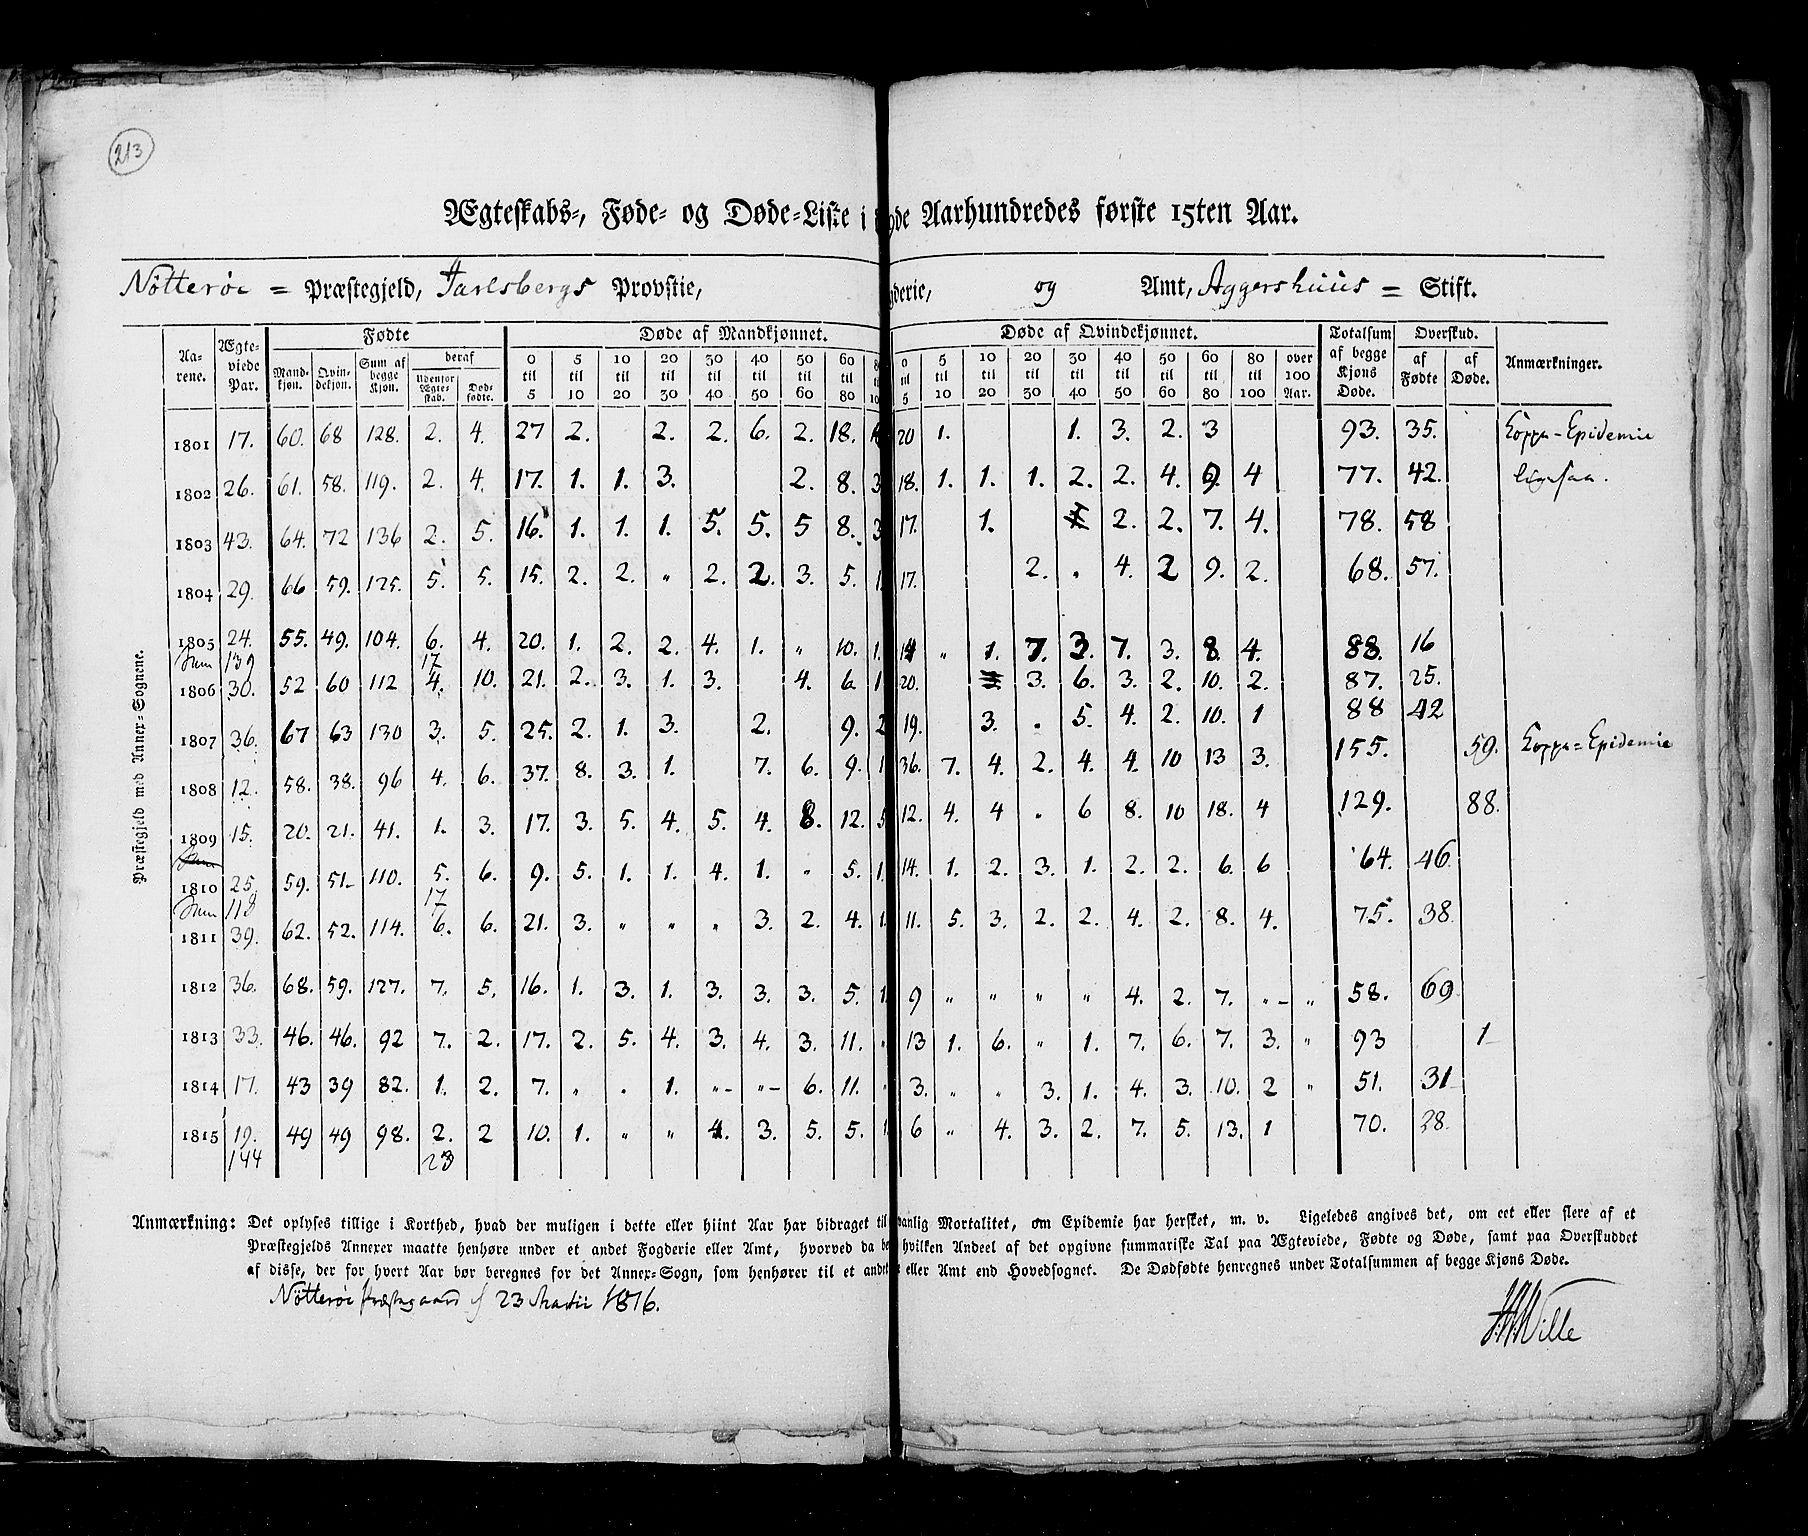 213
Ægteskabs-, Føde- og Døde-Liste i Aarhundredes første 15ten Aar.
Nötteröe = Præstegjeld, Jarlsbergs Provstie, gderie, og Amt, Aggershuus = Stift.
Præstegjeld med Annex-Sognene.
Aarene. Ægteviede Par. Fødte Døde af Mandkjønnet. Døde af Qvindekjønnet. Totalsum af begge Kjøns Døde. Overskud. Anmærkninger.
Mandkjøn. Qvindekjøn. Sum af begge Kjøn. deraf Udenfor Ægteskab. Dødfødte. af Fødte af Døde.
0 til 5 5 til 10 10 til 20 20 til 30 30 til 40 40 til 50 50 til 60 60 til 80 0 til 5 5 til 10 10 til 20 20 til 30 30 til 40 40 til 50 50 til 60 60 til 80 80 til 100 over 100 Aar.
1801 17. 60. 68 128. 2. 4. 27 2. 2. 2. 6. 2. 18. 20 1. 1. 3. 2. 3 93. 35. Koppe-Epidemie
1802 26. 61. 58. 119. 2. 4. 17. 1. 1. 3. 2. 8. 3 18. 1. 1. 1. 2. 2. 4. 9. 4 77. 42. ligesaa.
1803 43. 64. 72 136 2. 5. 16. 1. 1. 1. 5. 5. 5 8. 3 17. 1. 2. 2. 7. 4. 78. 58
1804 29. 66 59. 125. 5. 5. 15. 2. 2. " 2. 2. 3. 5. 1. 17. 2. " 4. 2 9. 2. 68. 57.
1805 24. 55. 49. 104. 6. 4. 20. 1. 2. 2. 4. 1. " 10. 1. 14 " 1. 7. 3. 7. 3. 8. 4. 88. 16
Sum 139 17
1806 30. 52 60 112 4. 10. 21. 2. 3. 1. 3. 4. 6 1 20. 3. 6. 3. 2. 10. 2. 87. 25.
1807 36. 67 63 130 3. 5. 25. 2. 1. 3. 2. 9. 2 19. 3. " 5. 4. 2. 10. 1 88 42
1808 12. 58. 38. 96 4. 6. 37. 8. 3. 1. 7. 6. 9. 1 36. 7. 4. 2. 4. 4. 10 13 3. 155. 59. Koppe=Epidemie
1809 15. 20. 21. 41. 1. 3. 17. 3. 5. 4. 5. 4. 8. 12. 5 12. 4. 4 " 6 8. 10 18. 4 129. 88.
1810 25. 59. 51. 110. 5. 6. 9. 5. 1. 1. 4. 1. " 5. 1. 14. 1. 2. 3. 1. 2. 2. 6. 6 64. 46
Sum 118 17
1811 39. 62. 52. 114. 6. 6. 21. 3. " " " 3. 2. 4. 1. 11. 5. 3. 2. 2. 4. 2. 8. 4. 75. 38.
1812 36. 68. 59. 127. 7. 5. 16. 1. 3. 1. 3. 3. 3. 5. 1. 9 " " " " 4. 2. 7. " " 58. 69
1813 33. 46. 46. 92 7. 2. 17. 2. 5. 4. 3. 4. 3. 11. " 13 1. 6. " 1. 7. 6. 7. 3. " 93 1
1814 17. 43 39 82. 1. 2. 7. " " 1. " " 6. 11. " 3. " " 3. 1. 4. 3. 10. 2 " 51. 31
1815 19. 49 49 98. 2. 2 10. 1. " " 4. 3. 5. 5. 1. 6 " 4. 3. 2. 7. 5. 13. 1 70. 28.
144 23
Anmærkning: Det oplyses tillige i Korthed, hvad der muligen i dette eller hiint Aar har bidraget til vanlig Mortalitet, om Epidemie har hersket, m. v. Ligeledes angives det, om eet eller flere af et
Præstegjelds Annexer maatte henhøre under et andet Fogderie eller Amt, hvorved da be hvilken Andeel af det opgivne summariske Tal paa Ægteviede, Fødte og Døde, samt paa Overskuddet
af disse, der for hvert Aar bør beregnes for det Annex-Sogn, som henhører til et andet eller Amt end Hovedsognet. De Dødfødte henregnes under Totalsummen af begge Kjøns Døde.
Nötteröe Præstegaard 23 Martii 1816.
Wille